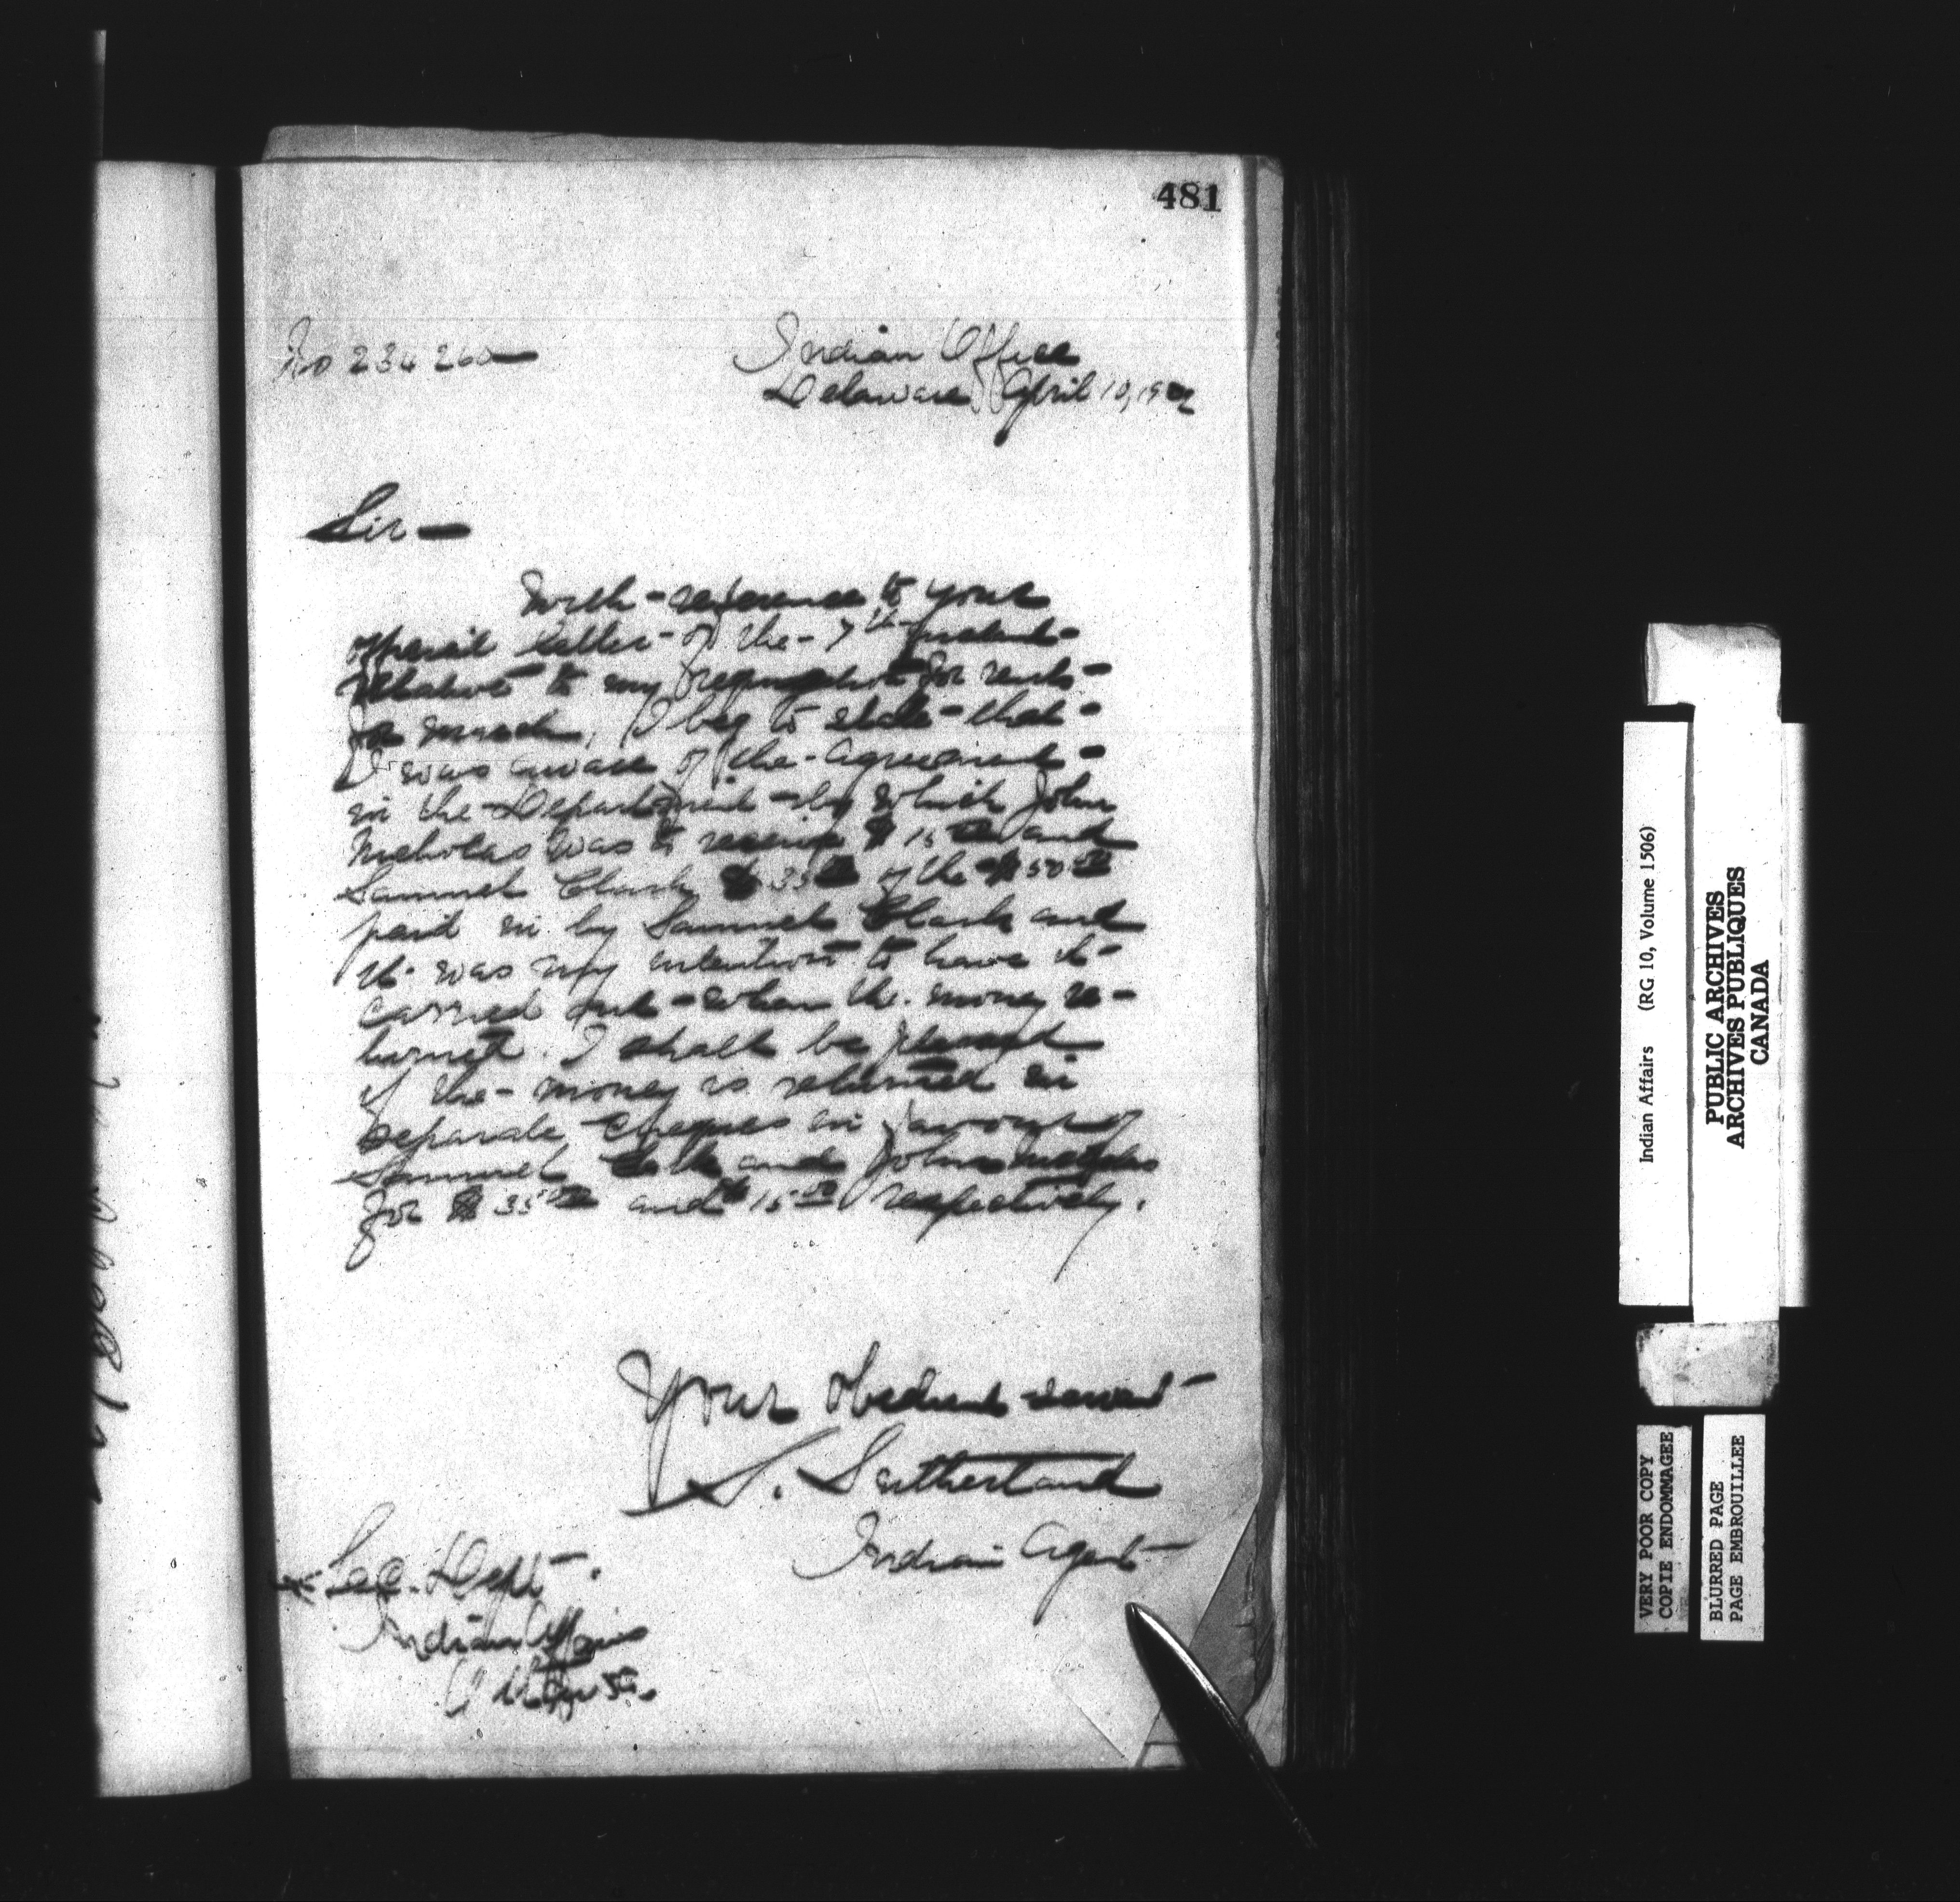 481
No 234260
Indian Office
Delaware April 10, 190
Sir —
With reference to your
official letter of the 7th instant
relative to my for
I beg to state that
I was aware of the agreement
in the Department by which John
Nicholas was to receive $15 and
Samuel Clark $35 of the $50
paid in by Samuel Clark and
it was my intention to have it
carried out when the money re-
turned. I shall be pleased
if the money is returned in
separate cheques in favour of
Samuel and John Nicholas
for $35 and $15 respectively.
Your obedient servant
S. Sutherland
Indian Agent
Sec. Dept.
Indian Affairs
Indian Affairs (RG 10, Volume 1506)
PUBLIC ARCHIVES
ARCHIVES PUBLIQUES
CANADA
VERY POOR COPY
COPIE ENDOMMAGEE
BLURRED PAGE
PAGE EMBROUILLEE